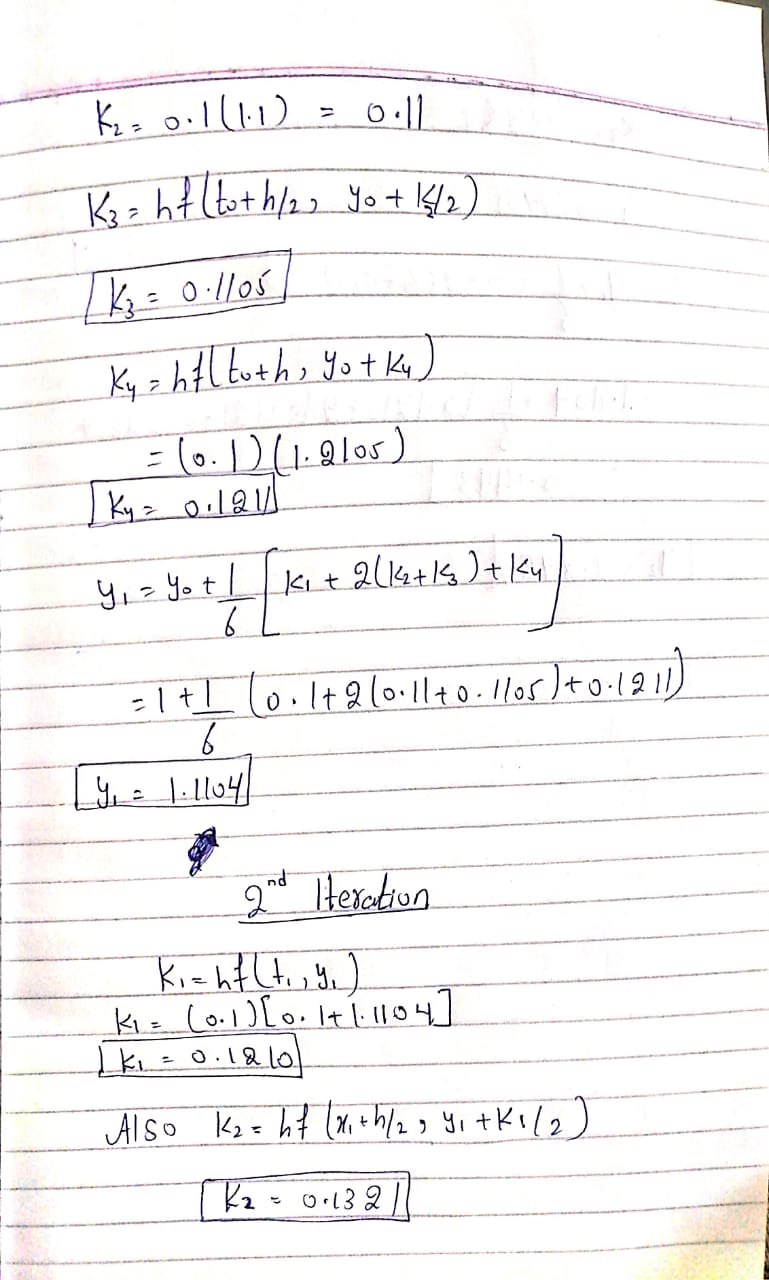 K₂ = 0.1(1.1) = 0.11
K₃ = hf(t₀+h/2, y₀+K₂/2)
K₃ = 0.1105
K₄ = hf(t₀+h, y₀+K₄)
= (0.1)(1.2105)
K₄ = 0.1211
y₁ = y₀ + 1/6 [K₁ + 2(K₂+K₃)+K₄]
= 1 + 1/6 (0.1+2(0.11+0.1105)+0.1211)
y₁ = 1.1104
2nd Iteration
K₁ = hf(t₁, y₁)
K₁ = (0.1)[0.1+1.1104]
K₁ = 0.1210
Also K₂ = hf (x₁+h/2, y₁+K₁/2)
K₂ = 0.1321